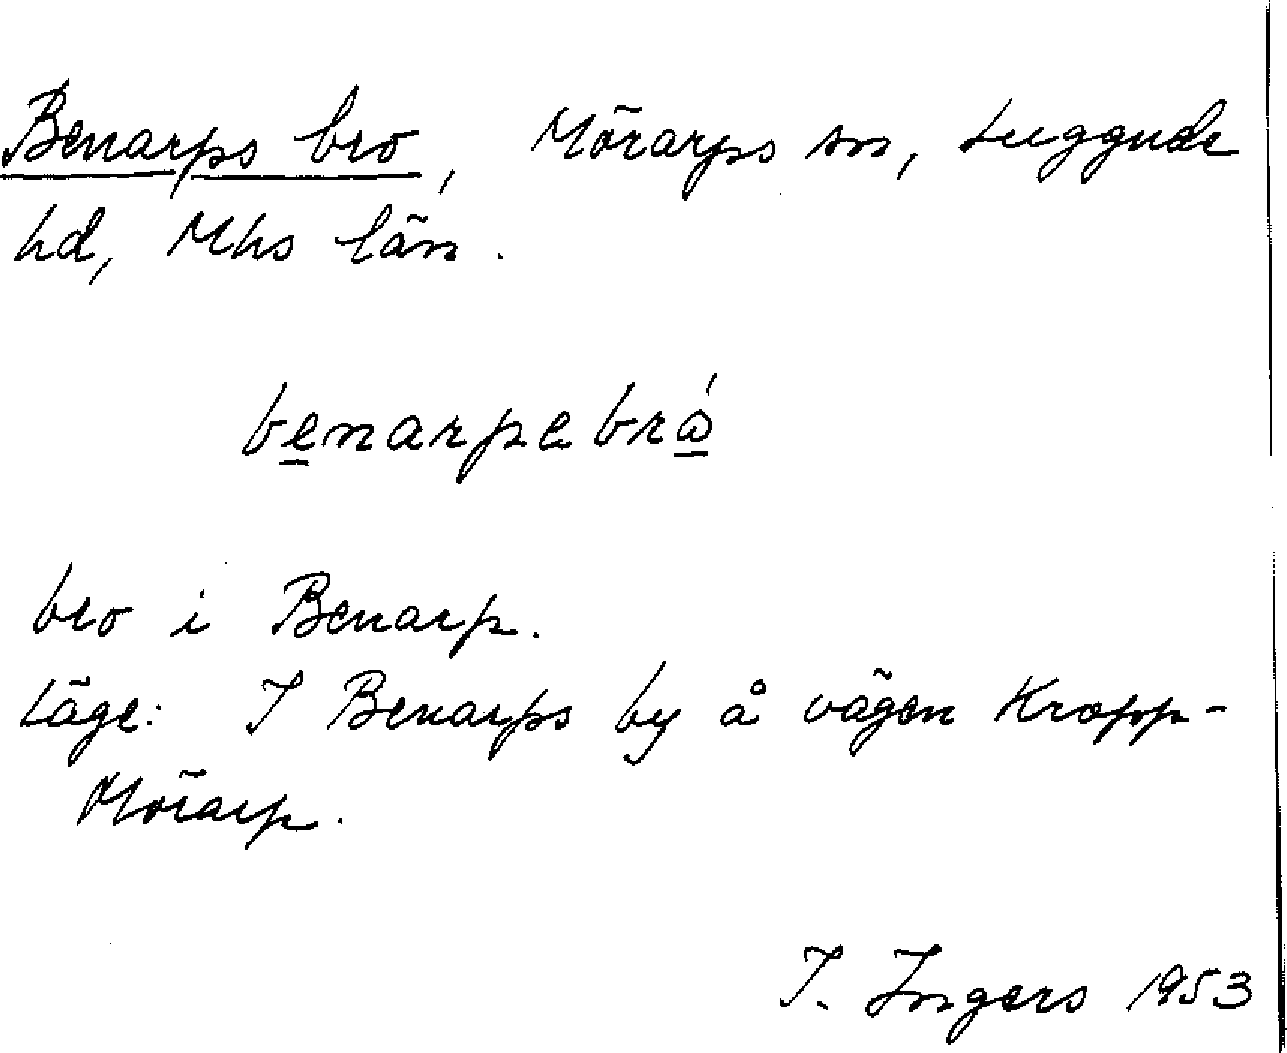 Benarps bro, Mörarps sn, Luggude
hd, Mhs län.
benarpebrǻ
bro i Benarp.
Läge: I Benarps by å vägen Kropp-
Mörarp.
I. Ingers 1953